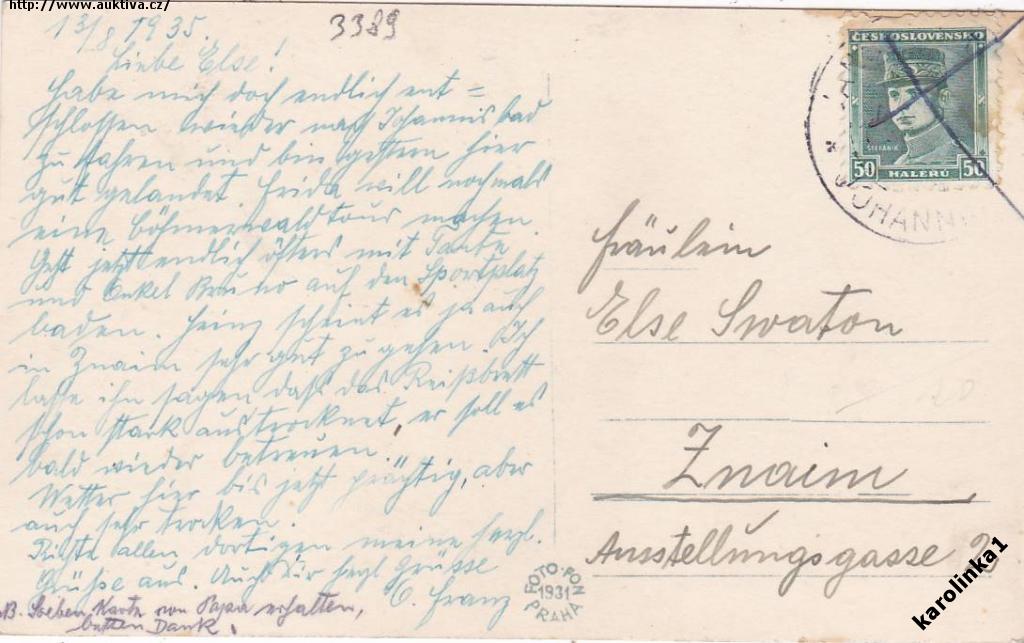 http://www.auktiva.cz/
13/8 1935.
3389
Liebe Else!
Habe mich doch endlich ent=
schlossen wieder nach Johannisbad
zu fahren und bin gestern hier
gut gelandet. Frida will nochmals
eine Böhmerwaldtour machen.
Geht jetzt endlich öfters mit Tante
und Onkel Bruno auf den Sportplatz
baden. Heinz scheint es ja auch
in Znaim sehr gut zu gehen. Ich
lasse ihm sagen dass das Reißbrett
schon stark austrocknet, er soll es
bald wieder betreuen.
Wetter hier bis jetzt prächtig, aber
auch sehr trocken.
Richte allen dortigen meine herzl.
Grüße aus. Auch Dir herzl Grüsse
Franz
NB. Soeben Karte von Papa erhalten,
besten Dank.
ČESKOSLOVENSKO
ŠTEFÁNIK
50 HALÉŘŮ 50
JOHANNI
Fräulein
Else Swaton
Znaim
Ausstellungsgasse 2
FOTO-FON
1931
PRAHA
karolinka1